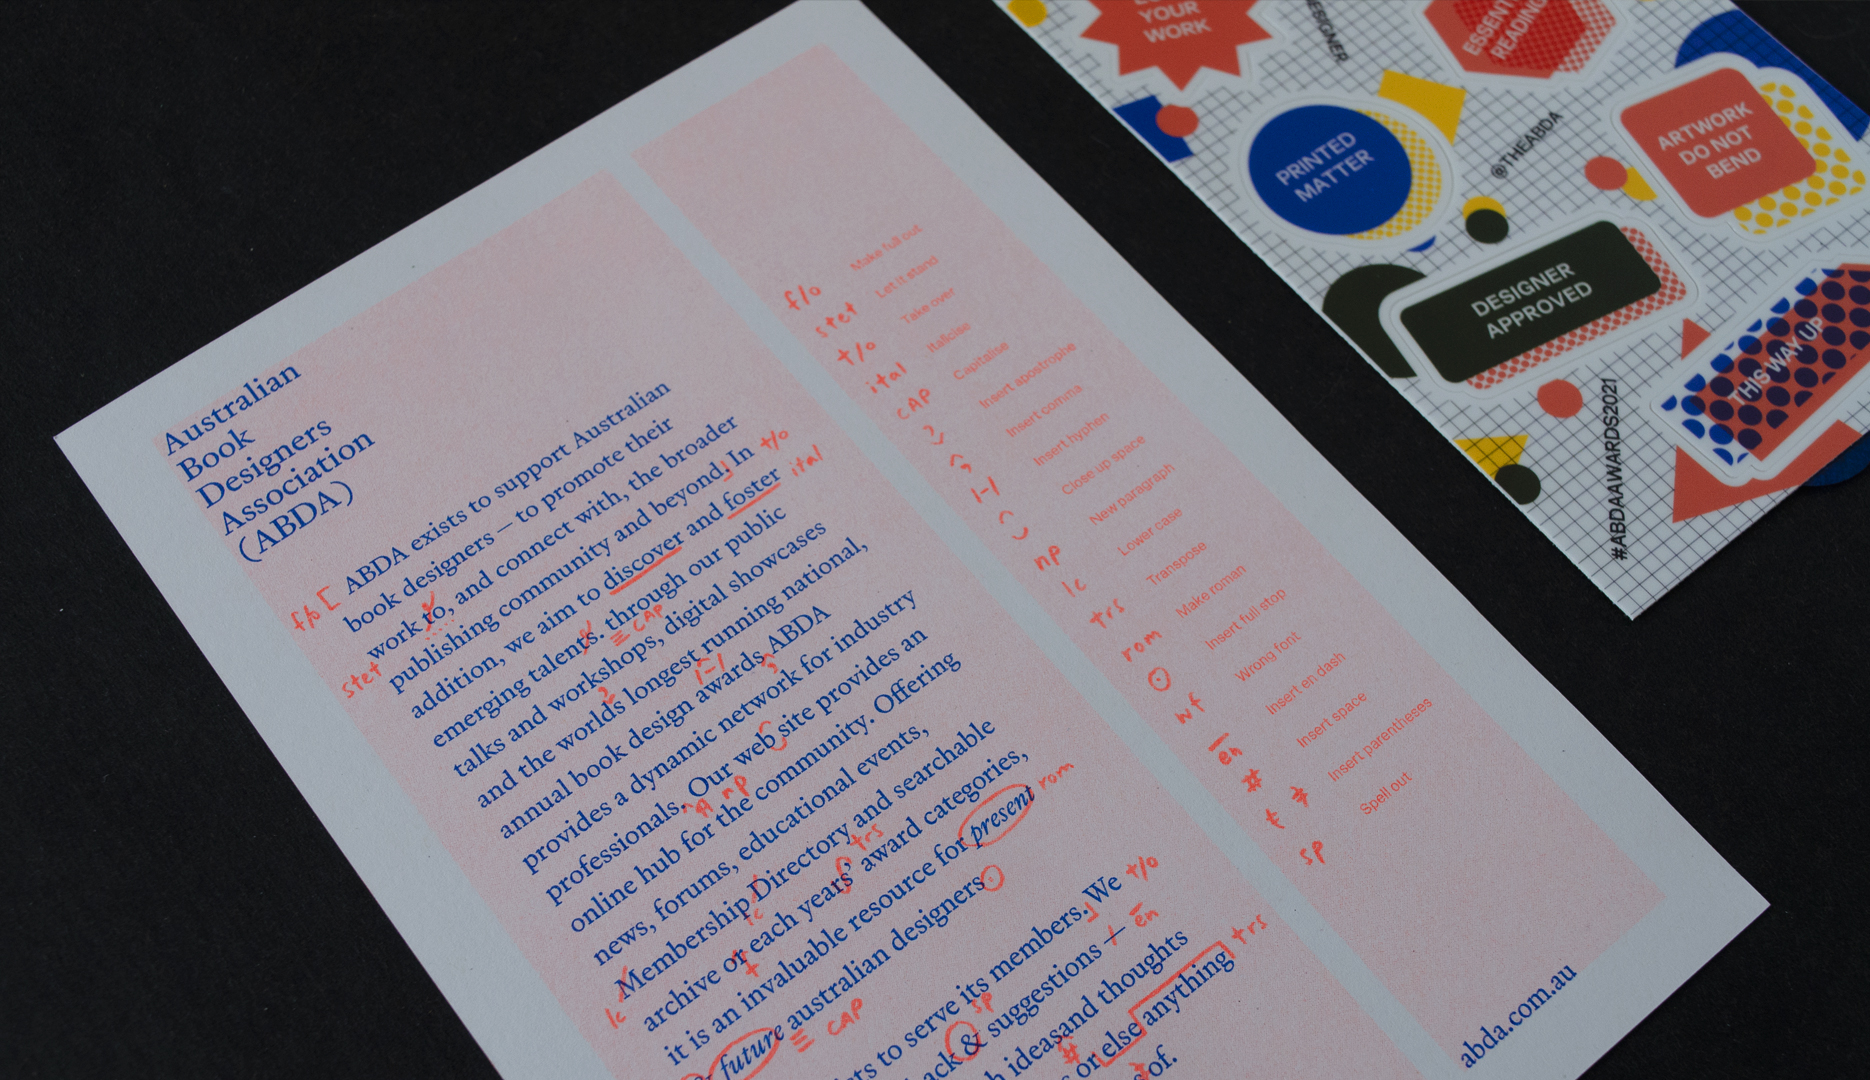 Australian
Book
Designers
Association
(ABDA)
ABDA exists to support Australian
book designers — to promote their
work to, and connect with, the broader
publishing community and beyond. In
addition, we aim to discover and foster
emerging talents. through our public
talks and workshops, digital showcases
and the worlds longest running national,
annual book design awards ABDA
provides a dynamic network for industry
professionals. Our web site provides an
online hub for the community. Offering
news, forums, educational events,
Membership Directory and searchable
archive or each years' award categories,
it is an invaluable resource for present
future australian designers
to serve its members. We
& suggestions —
ideasand thoughts
or else anything
of.
f/o
stet
t/o
ital
CAP
np
rom
trs
lc
lc
trs
CAP
t/o
en
sp
#
trs
f/o Make full out
stet Let it stand
t/o Take over
ital Italicise
CAP Capitalise
Insert apostrophe
Insert comma
Insert hyphen
Close up space
np New paragraph
lc Lower case
trs Transpose
rom Make roman
Insert full stop
wf Wrong font
en Insert en dash
# Insert space
Insert parentheses
sp Spell out
abda.com.au
YOUR
WORK
DESIGNER
ESSENT
READING
PRINTED
MATTER
@THEABDA
ARTWORK
DO NOT
BEND
DESIGNER
APPROVED
THIS WAY UP
#ABDAAWARDS2021